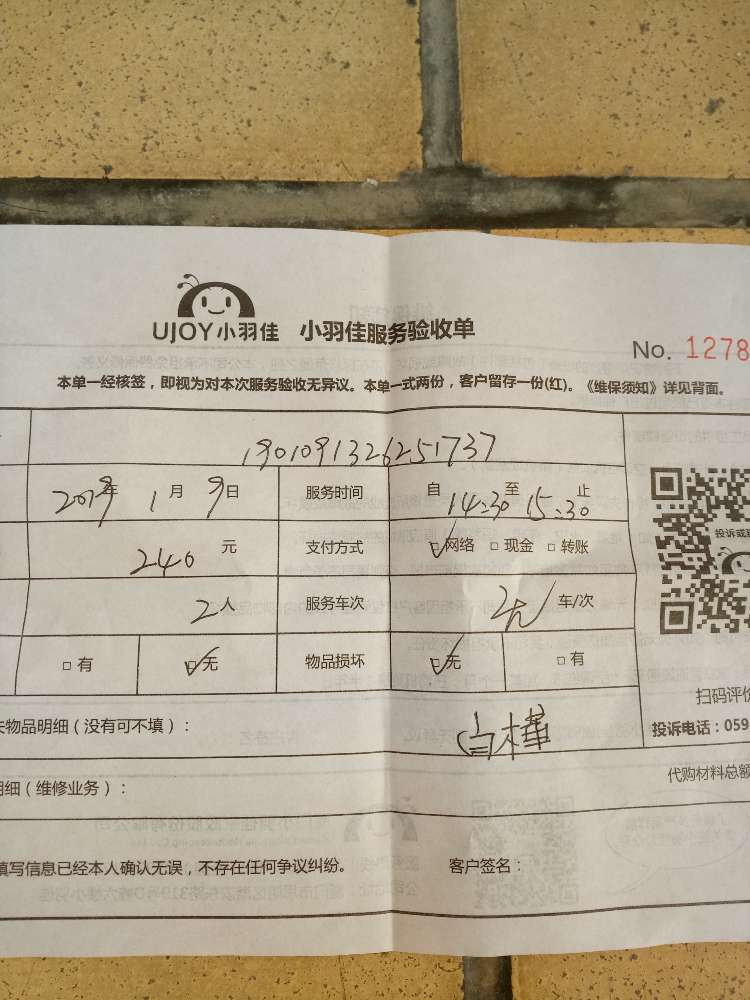 UJOY小羽佳 小羽佳服务验收单
No. 1278
本单一经核签，即视为对本次服务验收无异议。本单一式两份，客户留存一份(红)。《维保须知》详见背面。
1901091326251737
2019年 1月 9日 服务时间 自 14:30 至 15:30 止
投诉或建
240 元 支付方式 ☑网络 □ 现金 □ 转账
2人 服务车次 车/次
□ 有 ☑无 物品损坏 ☑无 □ 有
扫码评价
失物品明细（没有可不填）：
投诉电话：059
代购材料总额
明细（维修业务）：
填写信息已经本人确认无误，不存在任何争议纠纷。 客户签名：